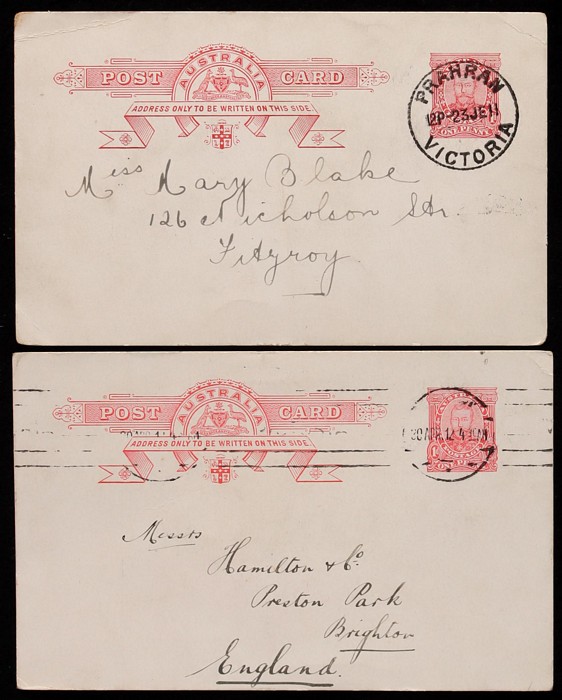 AUSTRALIA
POST CARD
ADDRESS ONLY TO BE WRITTEN ON THIS SIDE.
ONE PENNY
PRAHRAN
12P-23JE11
VICTORIA
Miss Mary Blake
126 Nicholson Str
Fitzroy
AUSTRALIA
POST CARD
ADDRESS ONLY TO BE WRITTEN ON THIS SIDE.
POSTAGE
ONE PENNY
Messrs
Hamilton & Co
Preston Park
Brighton
England.